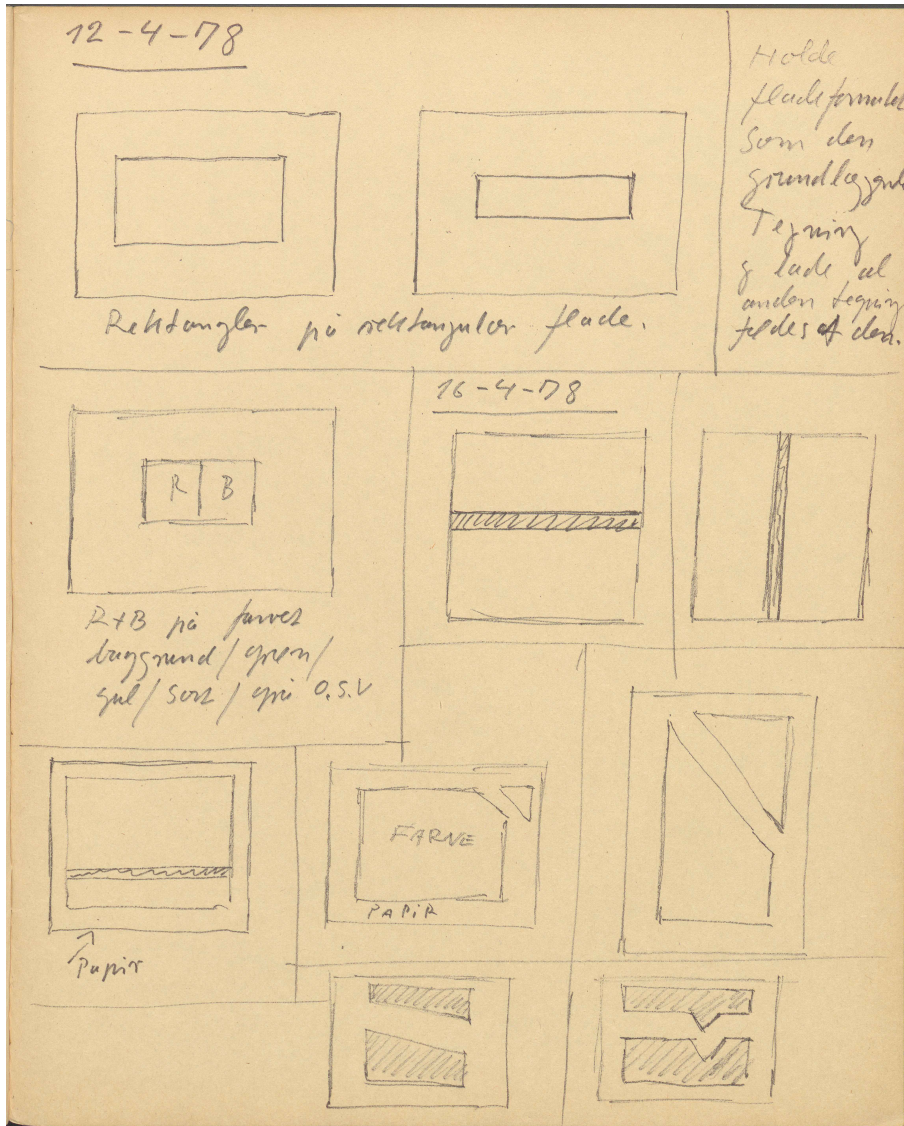 12-4-78
Holde
fladeformatet
som den
grundlæggende
Tegning
& lade al
anden tegning
af den.
Rektangler på rektangulær flade.
16-4-78
R B
R+B på farvet
baggrund/grøn/
gul/sort/grå O.S.V
FARVE
PAPIR
Papir